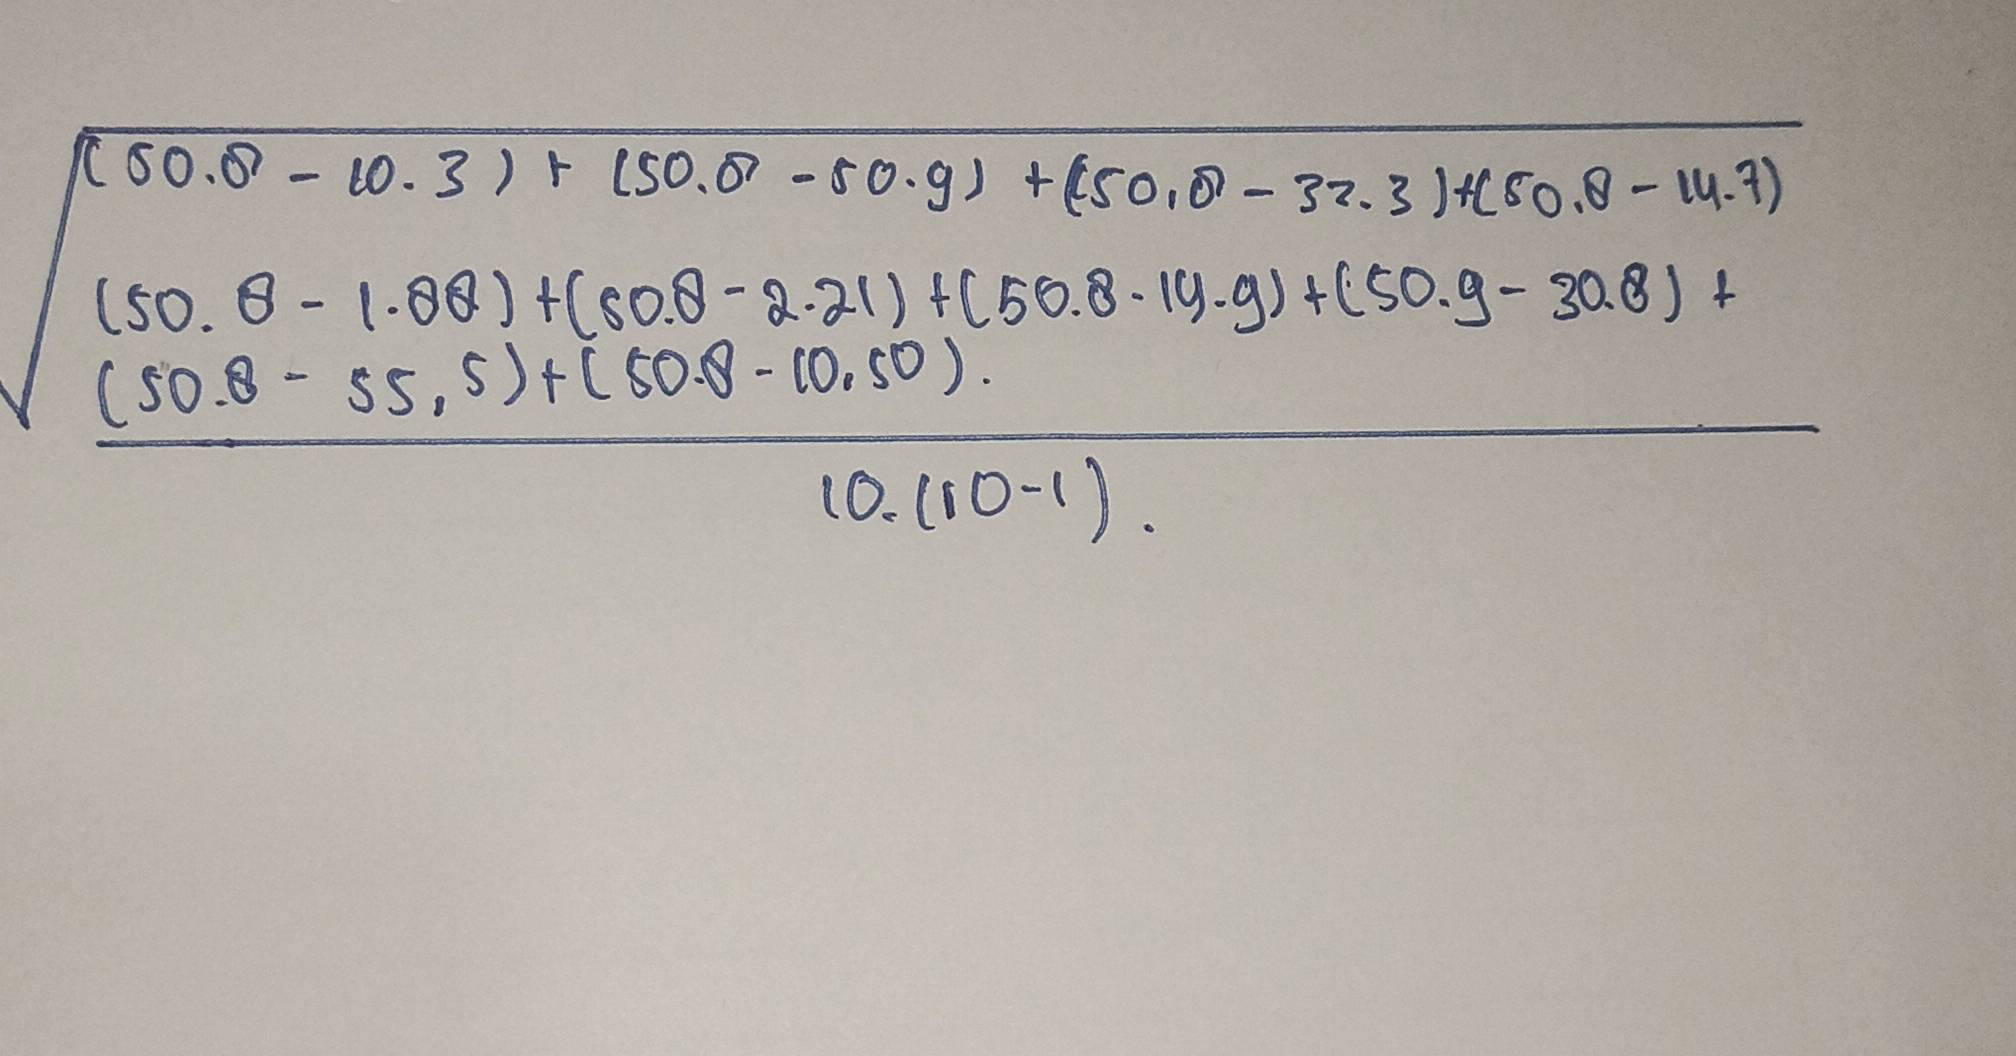 √(50.8 - 10.3) + (50.8 - 50.9) + (50,8 - 32.3)+(50.8 - 14.7)
(50.8 - 1.88)+(50.8 - 2.21)+(50.8 - 14.9)+(50.9 - 30.8) +
(50.8 - 55,5)+(50.8 - 10,50).
10.(10-1).